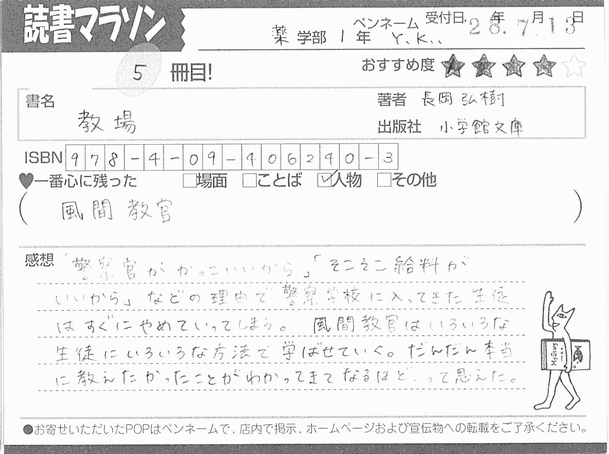 読書マラソン
薬 学部 1 年 ペンネーム Y.K.. 受付日. 28.年7.月13日
5 冊目! おすすめ度 ★★★★☆
書名 教場
著者 長岡弘樹
出版社 小学館文庫
ISBN 978-4-09-406240-3
♥一番心に残った □場面 □ことば ☑人物 □その他
( 風間教官 )
感想 「警察官がかっこいいから」「そこそこ給料が
いいから」などの理由で警察学校に入ってきた生徒
はすぐにやめていってしまう。 風間教官はいろいろな
生徒にいろいろな方法で学ばせていく。だんだん本当
に教えたかったことがわかってきてなるほど、って思えた。
●お寄せいただいたPOPはペンネームで、店内で掲示、ホームページおよび宣伝物への転載をご了承ください。